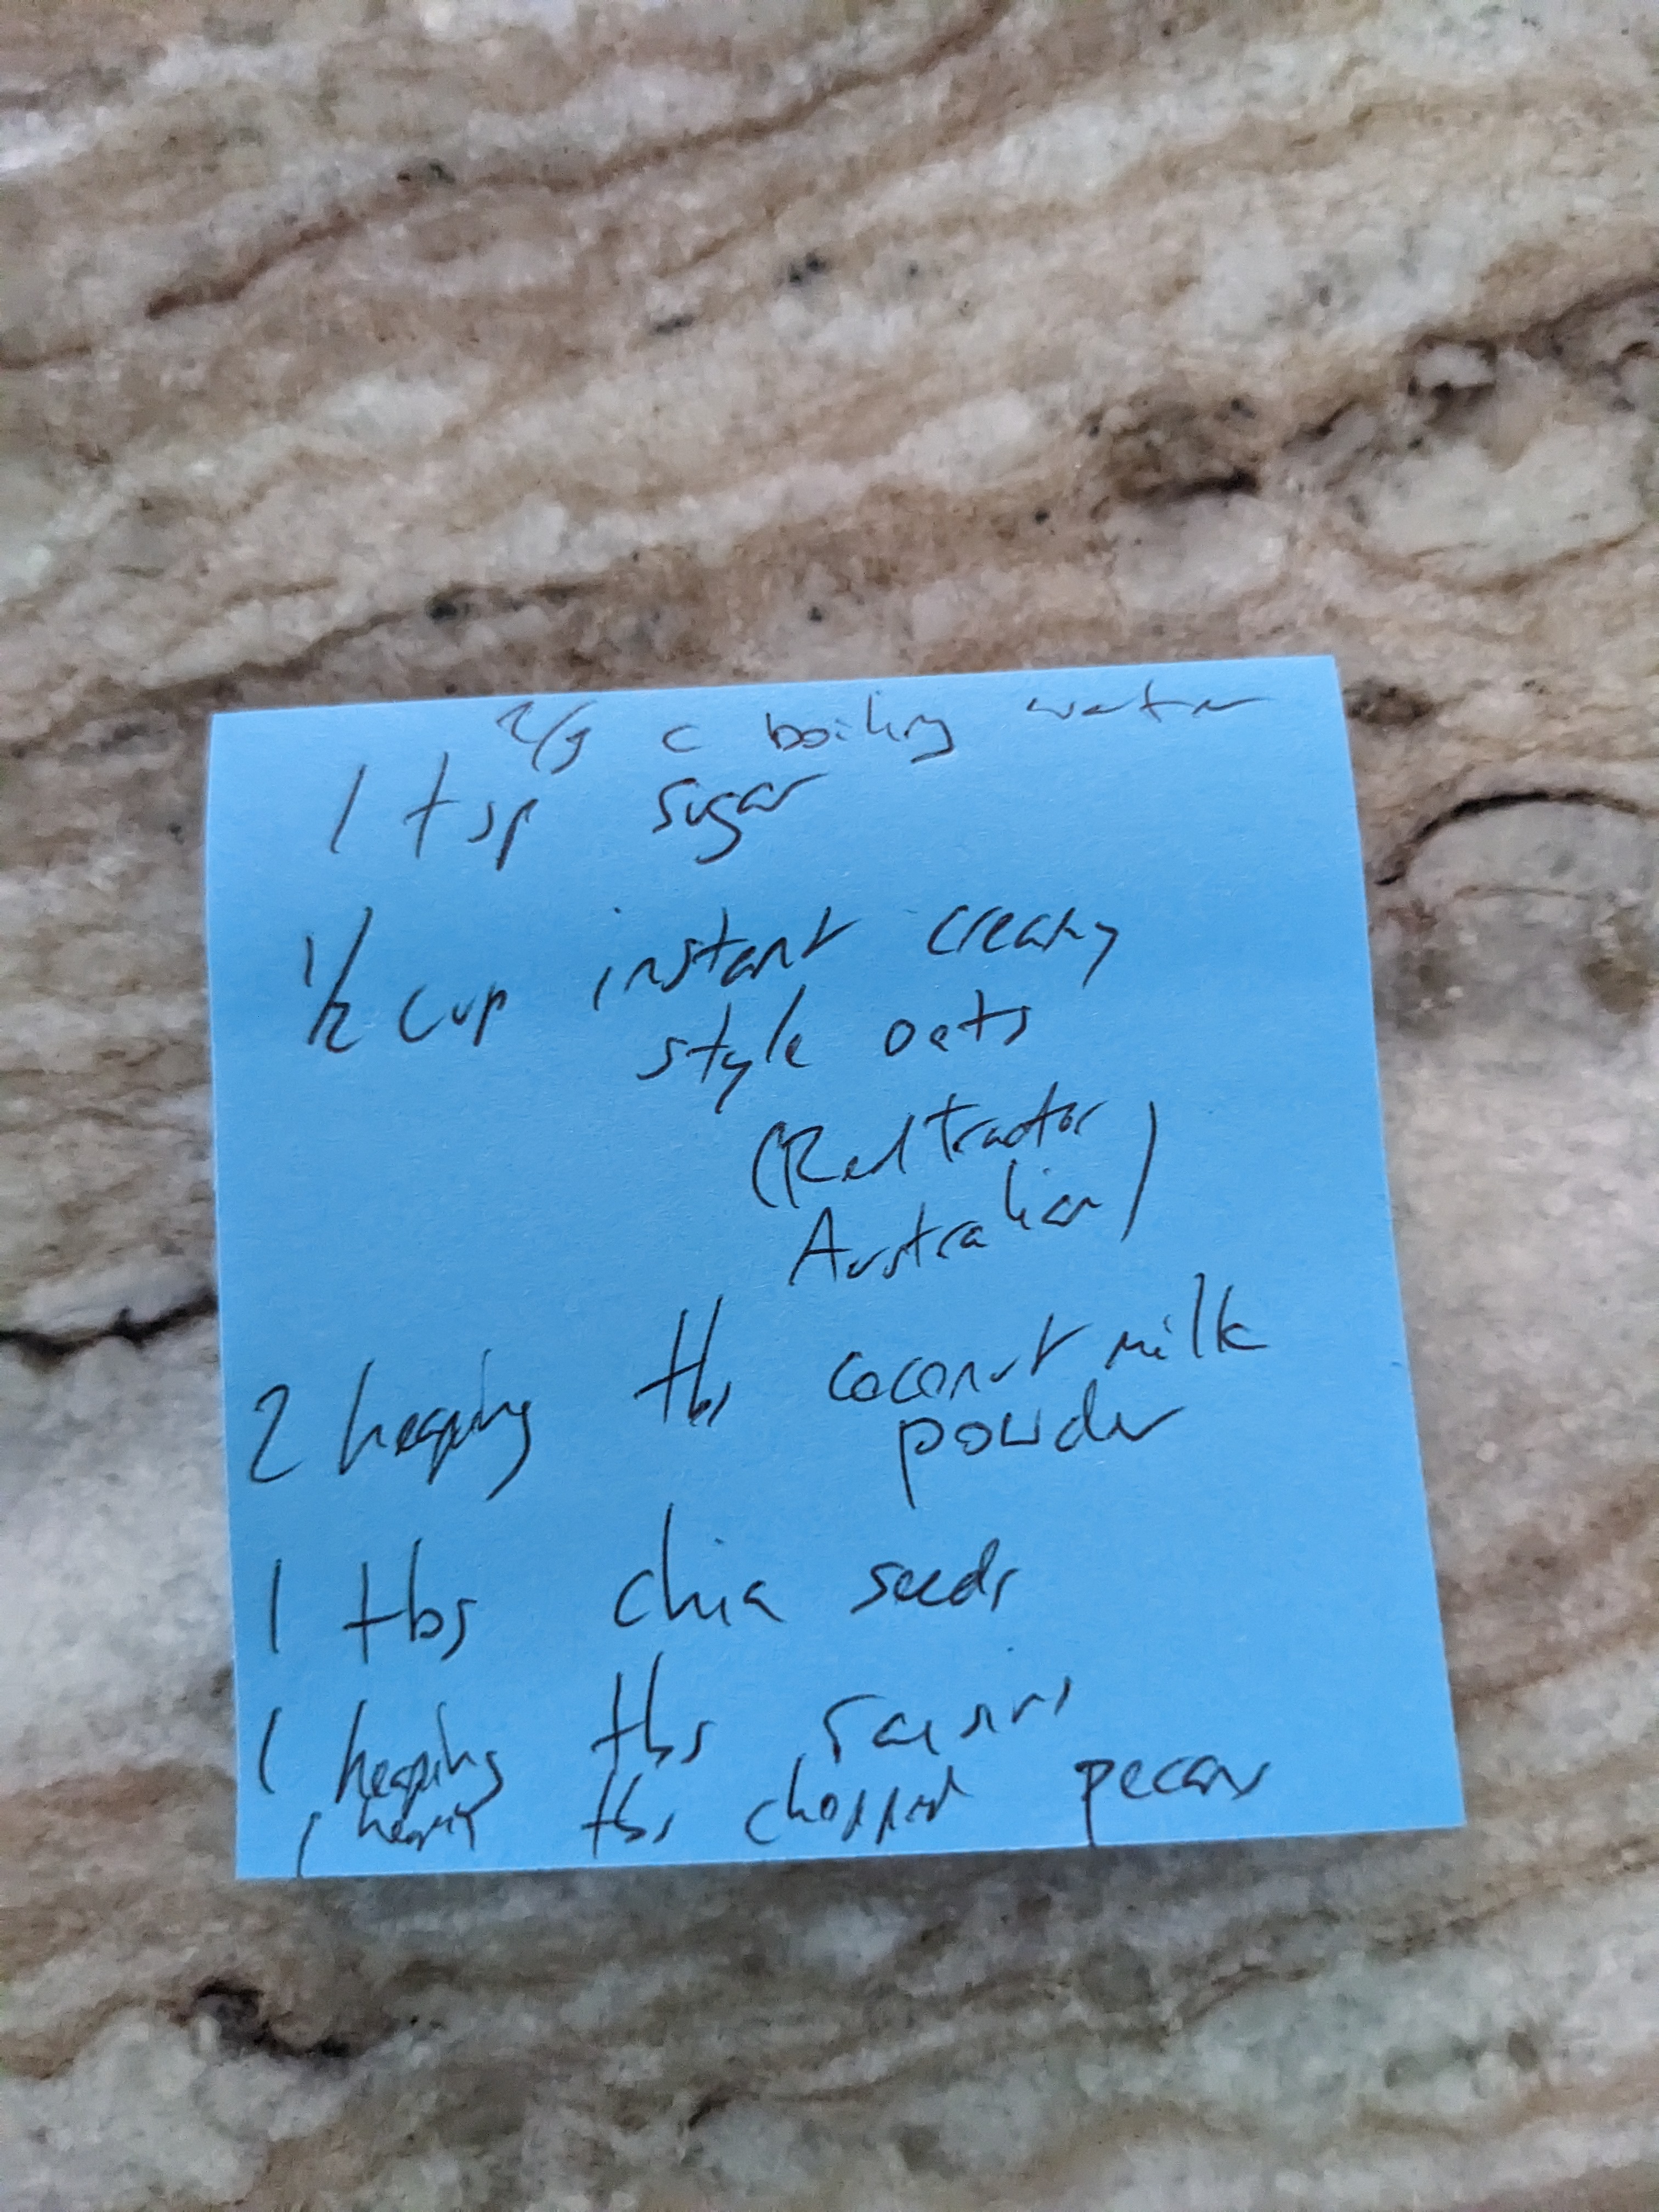 2/3 c boiling water
1 tsp sugar
1/2 cup instant creamy
style oats
(Red Tractor
Australian)
2 heaping tbs coconut milk
powder
1 tbs chia seeds
1 heaping tbs raisins
1 heaping tbs chopped pecans